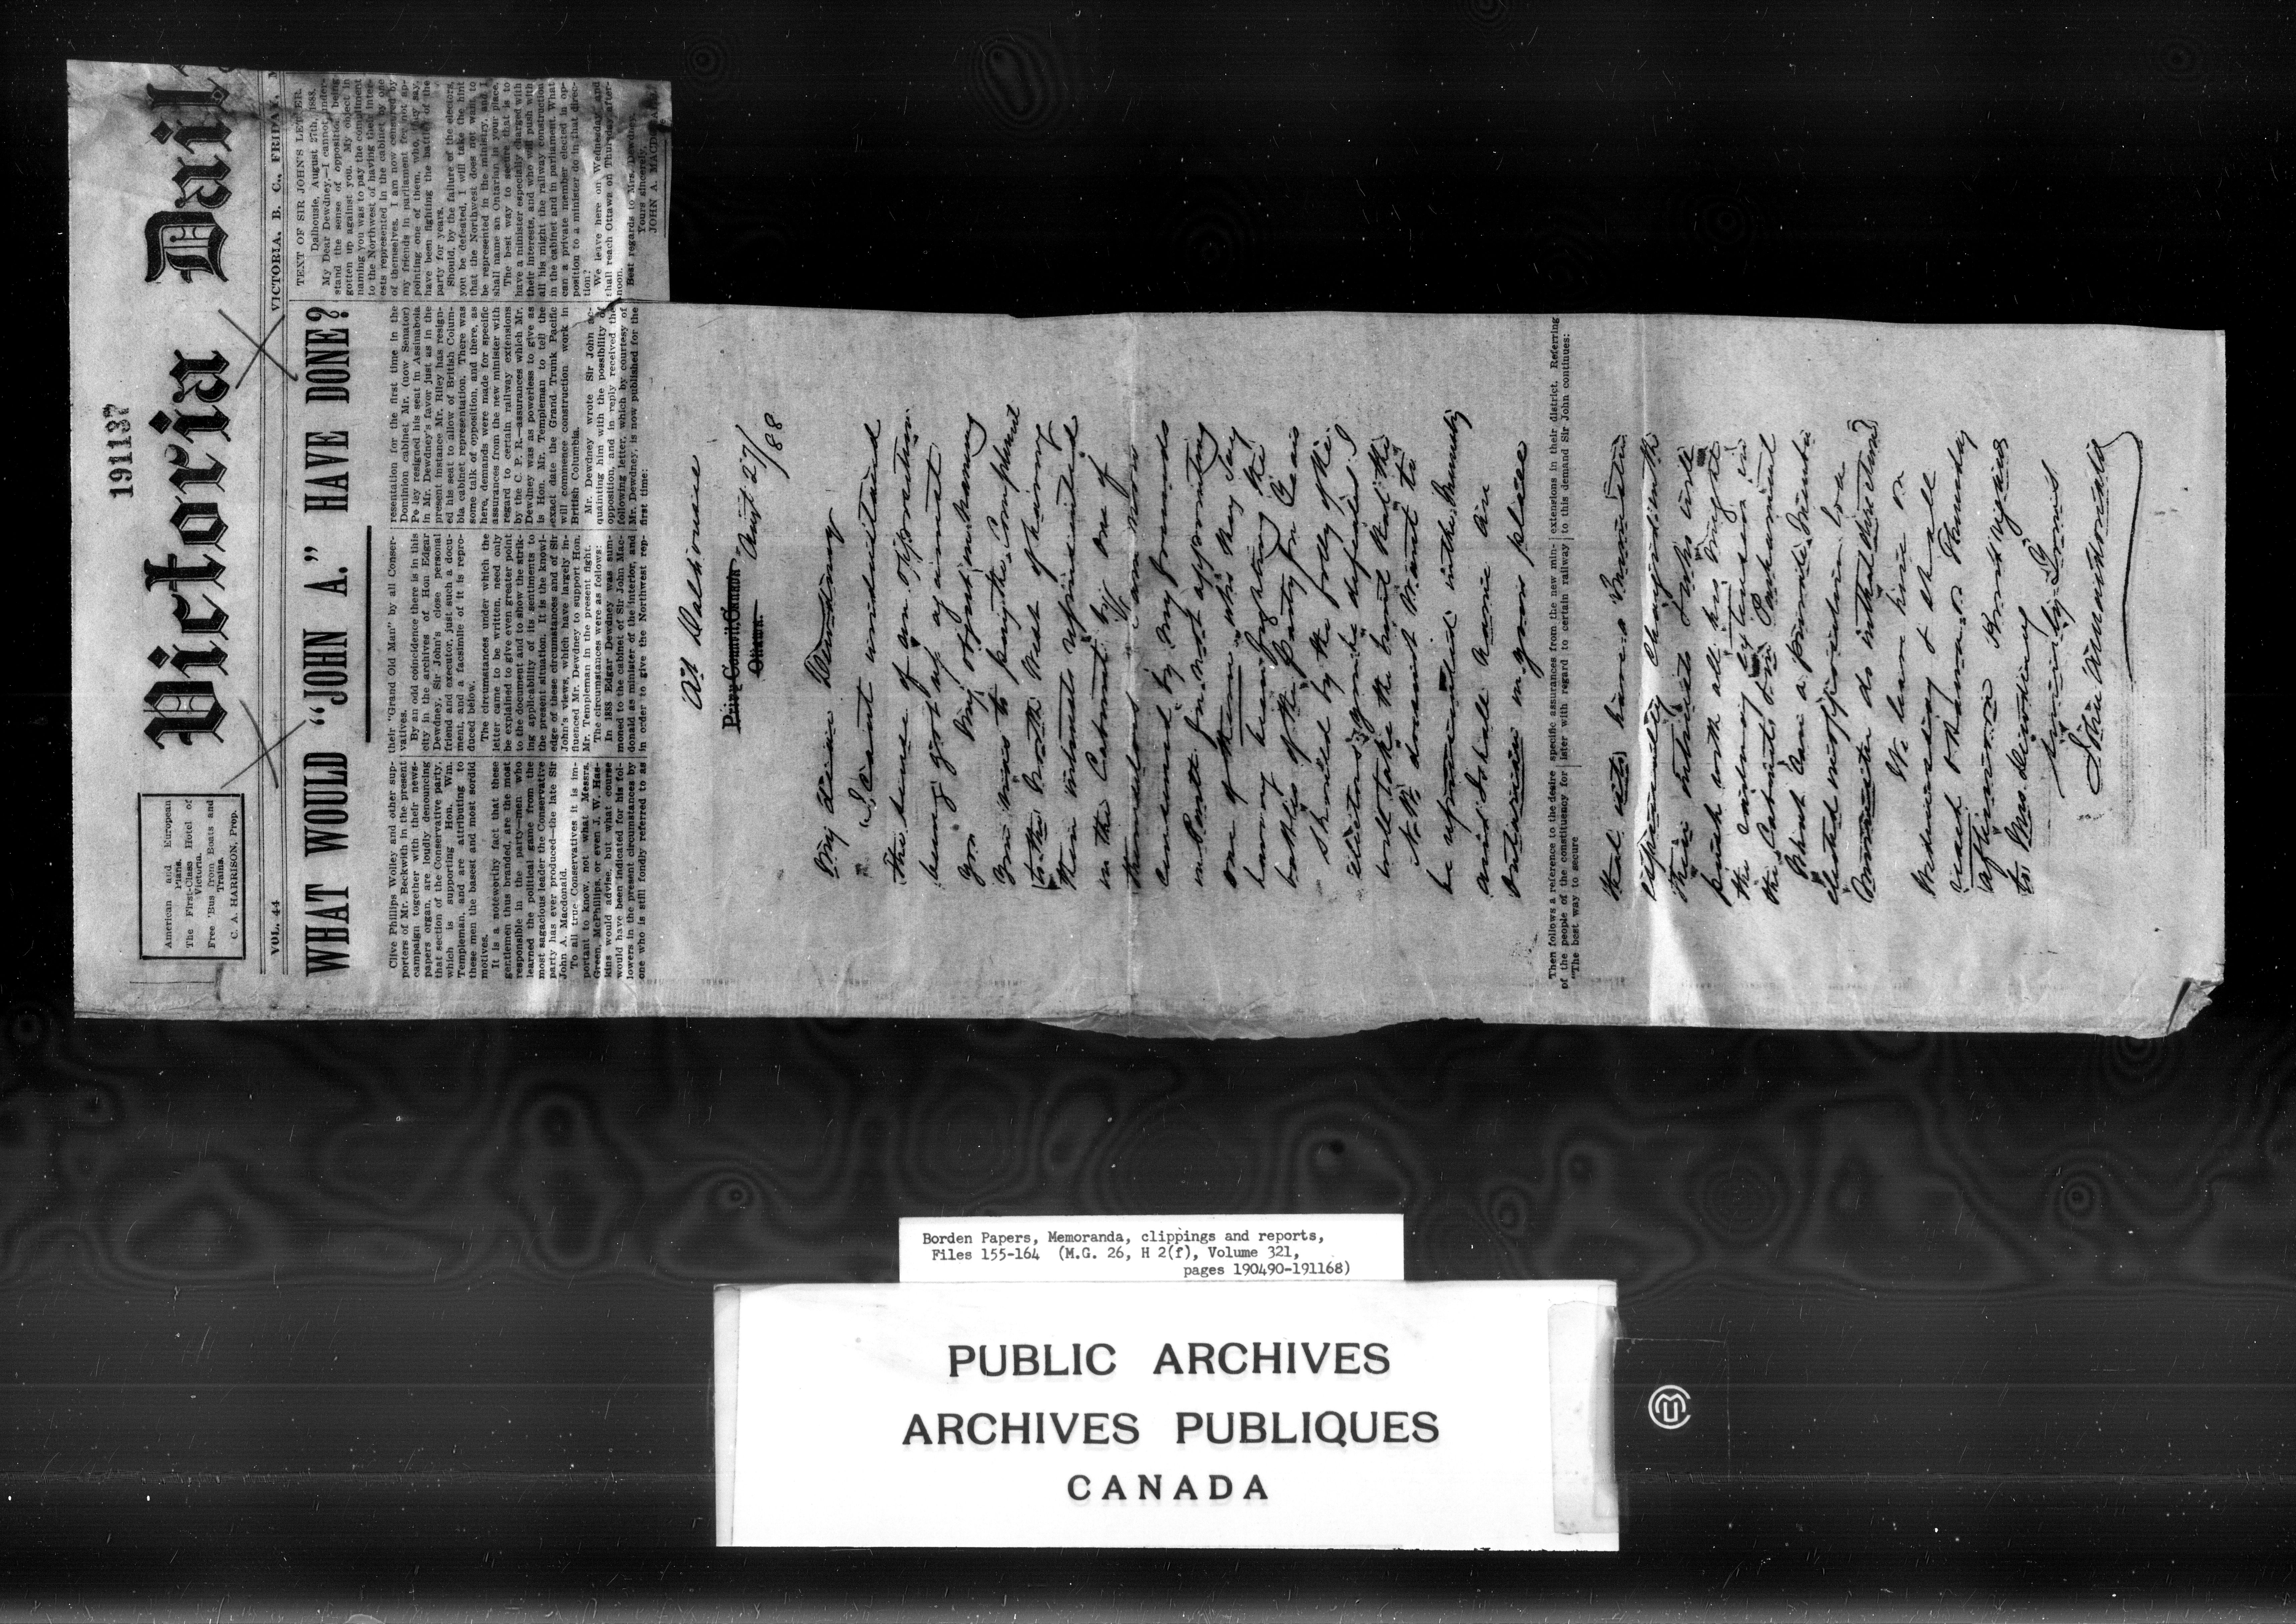 191137
American and European
Plans.
The First-Class Hotel of
Victoria.
Free 'Bus from Boats and
Trains.
C. A. HARRISON, Prop.
Victoria Dail
VOL. 44
VICTORIA, B. C., FRIDAY,
WHAT WOULD "JOHN A." HAVE DONE?
Clive Phillips Wolley and other sup-
porters of Mr. Beckwith in the present
campaign together with their news-
papers organ, are loudly denouncing
that section of the Conservative party,
which is supporting Hon. Wm.
Templeman, and are attributing to
these men the basest and most sordid
motives.
It is a noteworthy fact that these
gentlemen thus branded, are the most
responsible in the party—men who
learned the political game from the
most sagacious leader the Conservative
party has ever produced—the late Sir
John A. Macdonald.
To all true Conservatives it is im-
portant to know, not what Messrs.
Green, McPhillips, or even J. W. Has-
kins would advise, but what course
would have been indicated for his fol-
lowers in the present circumstances by
one who is still fondly referred to as
their "Grand Old Man" by all Conser-
vatives.
By an odd coincidence there is in this
city in the archives of Hon Edgar
Dewdney, Sir John's close personal
friend and executor, just such a docu-
ment, and a facsimile of it is repro-
duced below.
The circumstances under which the
letter came to be written, need only
be explained to give even greater point
to the document and to show the strik-
ing applicability of its sentiments to
the present situation. It is the knowl-
edge of these circumstances and of Sir
John's views, which have largely in-
fluenced Mr. Dewdney to support Hon.
Mr. Templeman in the present fight.
The circumstances were as follows:
In 1888 Edgar Dewdney was sum-
moned to the cabinet of Sir John Mac-
donald as minister of the interior, and
in order to give the Northwest rep-
resentation for the first time in the
Dominion cabinet Mr. (now Senator)
Perley resigned his seat in Assinaboia
in Mr. Dewdney's favor just as in the
present instance Mr. Riley has resign-
ed his seat to allow of British Colum-
bia cabinet representation. There was
some talk of opposition, and there, as
here, demands were made for specific
assurances from the new minister with
regard to certain railway extensions
by the C. P. R.—assurances which Mr.
Dewdney was as powerless to give as
is Hon. Mr. Templeman to tell the
exact date the Grand Trunk Pacific
will commence construction work in
British Columbia.
Mr. Dewdney wrote Sir John ac-
quainting him with the possibility of
opposition, and in reply received the
following letter, which by courtesy of
Mr. Dewdney, is now published for the
first time:
TEXT OF SIR JOHN'S LETTER.
Dalhousie, August 27th, 1888.
My Dear Dewdney,—I cannot under-
stand the sense of opposition being
gotten up against you. My object in
naming you was to pay the compliment
to the Northwest of having their inter-
ests represented in the cabinet by one
of themselves. I am now censured by
my friends in parliament for not ap-
pointing one of them, who, they say,
have been fighting the battles of the
party for years.
Should, by the failure of the electors,
you be defeated, I will take the hint
that the Northwest does not want to
be represented in the ministry, and I
shall name an Ontarian in your place.
The best way to secure that is to
have a minister especially charged with
their interests, and who will push with
all his might the railway construction
in the cabinet and in parliament. What
can a private member elected in op-
position to a minister do in that direc-
tion?
We leave here on Wednesday, and
shall reach Ottawa on Thursday after-
noon.
Best regards to Mrs. Dewdney.
Yours sincerely,
JOHN A. MACDONALD.
At Dalhousie
Privy Council, Canada
Ottawa.
Augt 27/88
My dear Dewdney
I can't understand
the sense of an opposition
being got up against
you My object in naming
you was to pay the compliment
to the North West of having
their interests represented
in the Cabinet by one of
themselves I am now
censured by my friends
in Parlt for not appointing
one of them who they say
have been fighting the
battles of the Party for years
Should by the folly of the
electors you be defeated I
will take the hint that the
N.W. doesn't want to
be represented in the Ministry
and I shall name an
Ontarian in your place
Then follows a reference to the desire
of the people of the constituency for
"The best way to secure
specific assurances from the new min-
ister with regard to certain railway
extensions in their district. Referring
to this demand Sir John continues:
that is to have a Minister
especially charged with
their interests who will
push with all his might
the railway extension in
the Cabinet & in Parliament
What can a private member
elected in opposition to a
Minister do in that direction?
We leave here on
Wednesday & shall
reach Ottawa on Thursday
afternoon Best regards
to Mrs. Dewdney
Sincerely Yours
John A Macdonald
Borden Papers, Memoranda, clippings and reports,
Files 155-164 (M.G. 26, H 2(f), Volume 321,
pages 190490-191168)
PUBLIC ARCHIVES
ARCHIVES PUBLIQUES
CANADA